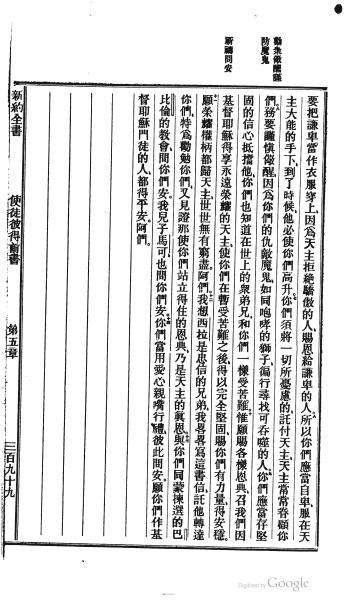 勸衆儆醒謹
防魔鬼
祈禱問安
要把謙卑當作衣服穿上、因爲天主拒絕驕傲的人、賜恩給謙卑的人、所以你們應當自卑、服在天
主大能的手下、到了時候、他必使你們高升、你們須將一切所憂慮的、託付天主、天主常常眷顧你
們、務要謹慎儆醒、因爲你們的仇敵魔鬼、如同咆哮的獅子、徧行尋找可吞噬的人、你們應當存堅
固的信心抵擋他、你們也知道在世上的衆弟兄、和你們一樣受苦難、惟願賜各樣恩典、召我們因
基督耶穌得享永遠榮耀的天主、使你們在暫受苦難之後、得以完全堅固、賜你們有力量、得安穩、
願榮耀權柄都歸天主、世世無有窮盡、阿們。我想西拉是忠信的兄弟、我畧畧寫這書信、託他轉達
你們、特爲勸勉你們、又見證那使你們站立得住的恩典、乃是天主的眞恩、與你們同蒙揀選的巴
比倫的教會、問你們安、我兒子馬可也問你們安、你們當用愛心親嘴行禮、彼此問安、願你們作基
督耶穌門徒的人、都得平安、阿們。
新約全書
使徒彼得前書
第五章
三百九十九
Digitized by Google